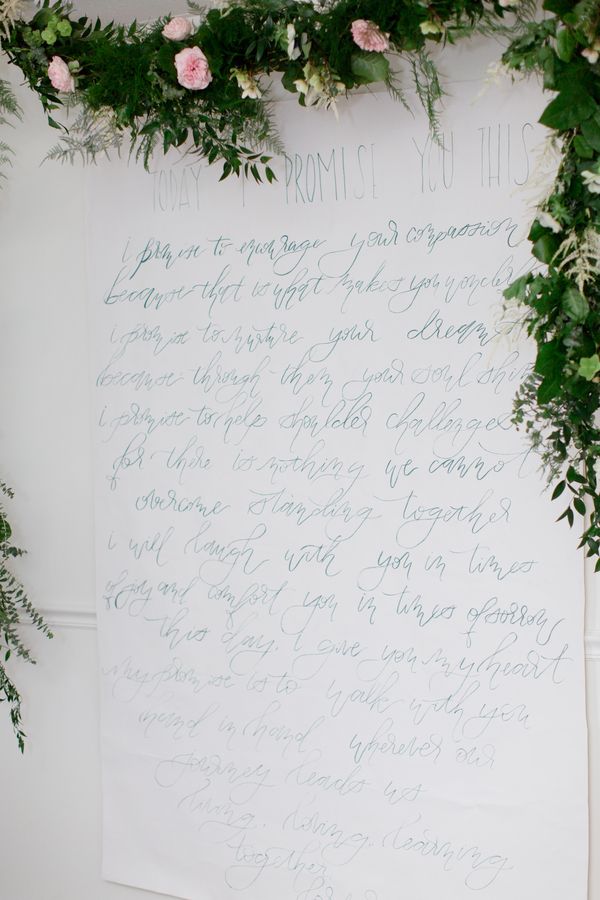 TODAY I PROMISE YOU THIS
i promise to encourage your compassion
because that is what makes you wonder
i promise to nurture your dreams
because through them your soul shin
i promise to help shoulder challenges
for there is nothing we cannot
overcome standing together
i will laugh with you in times
of joy and comfort you in times of sorrow
this day. I give you my heart
my promise is to walk with you
hand in hand wherever our
journey leads us
living. loving. learning
together